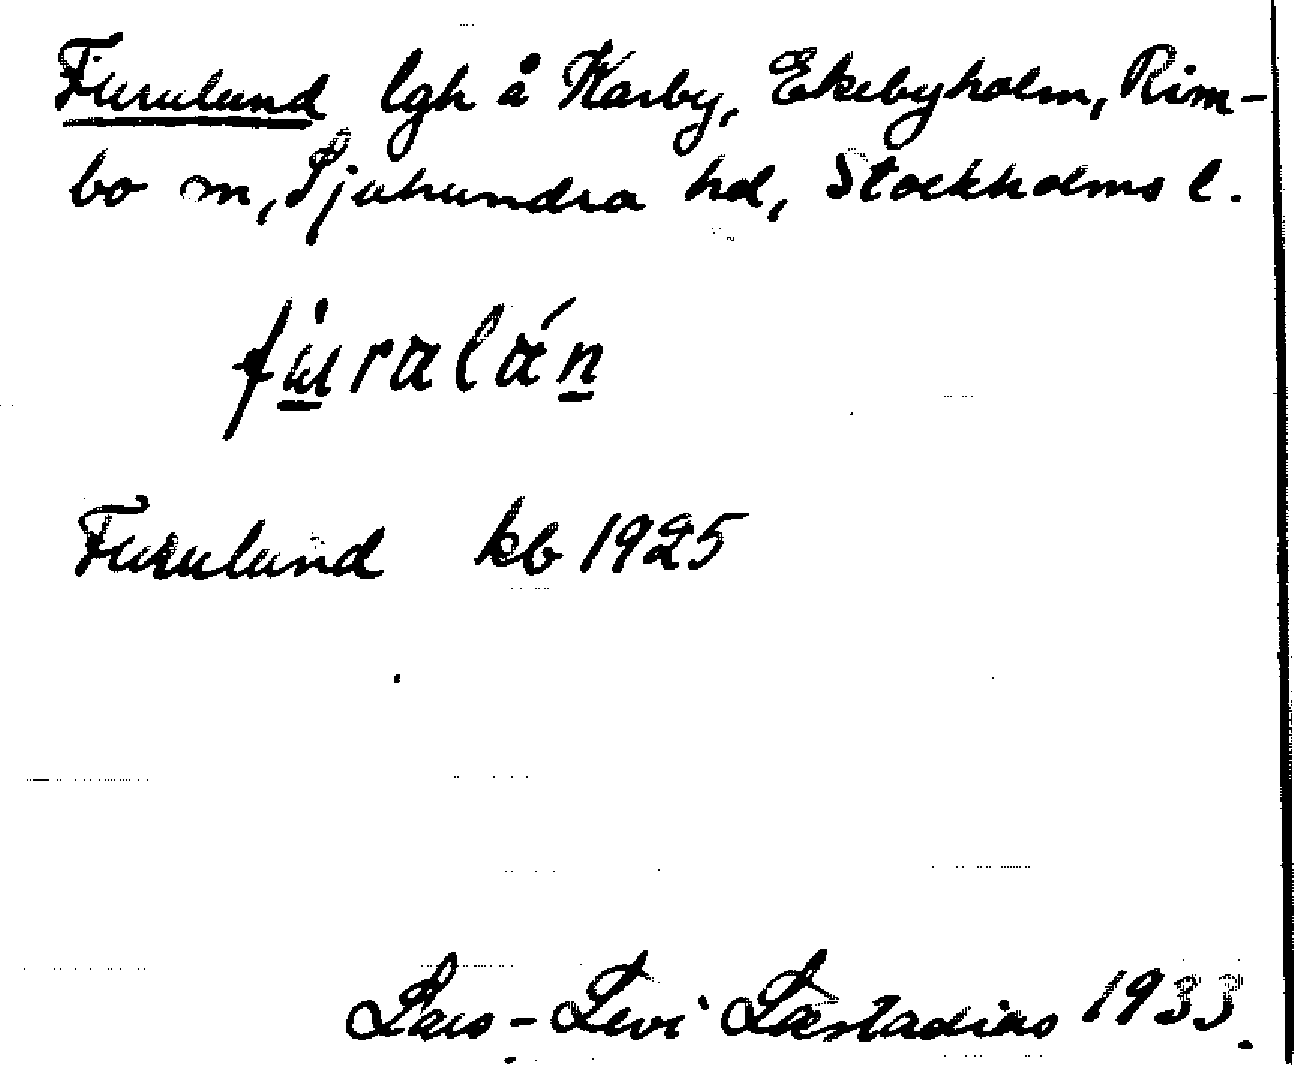 Furulund lgh å Karby, Ekebyholm, Rim-
bo sn, Sjuhundra hd, Stockholms l.
fùralán
Furulund kb 1925
Lars-Levi Læstadius 1933.